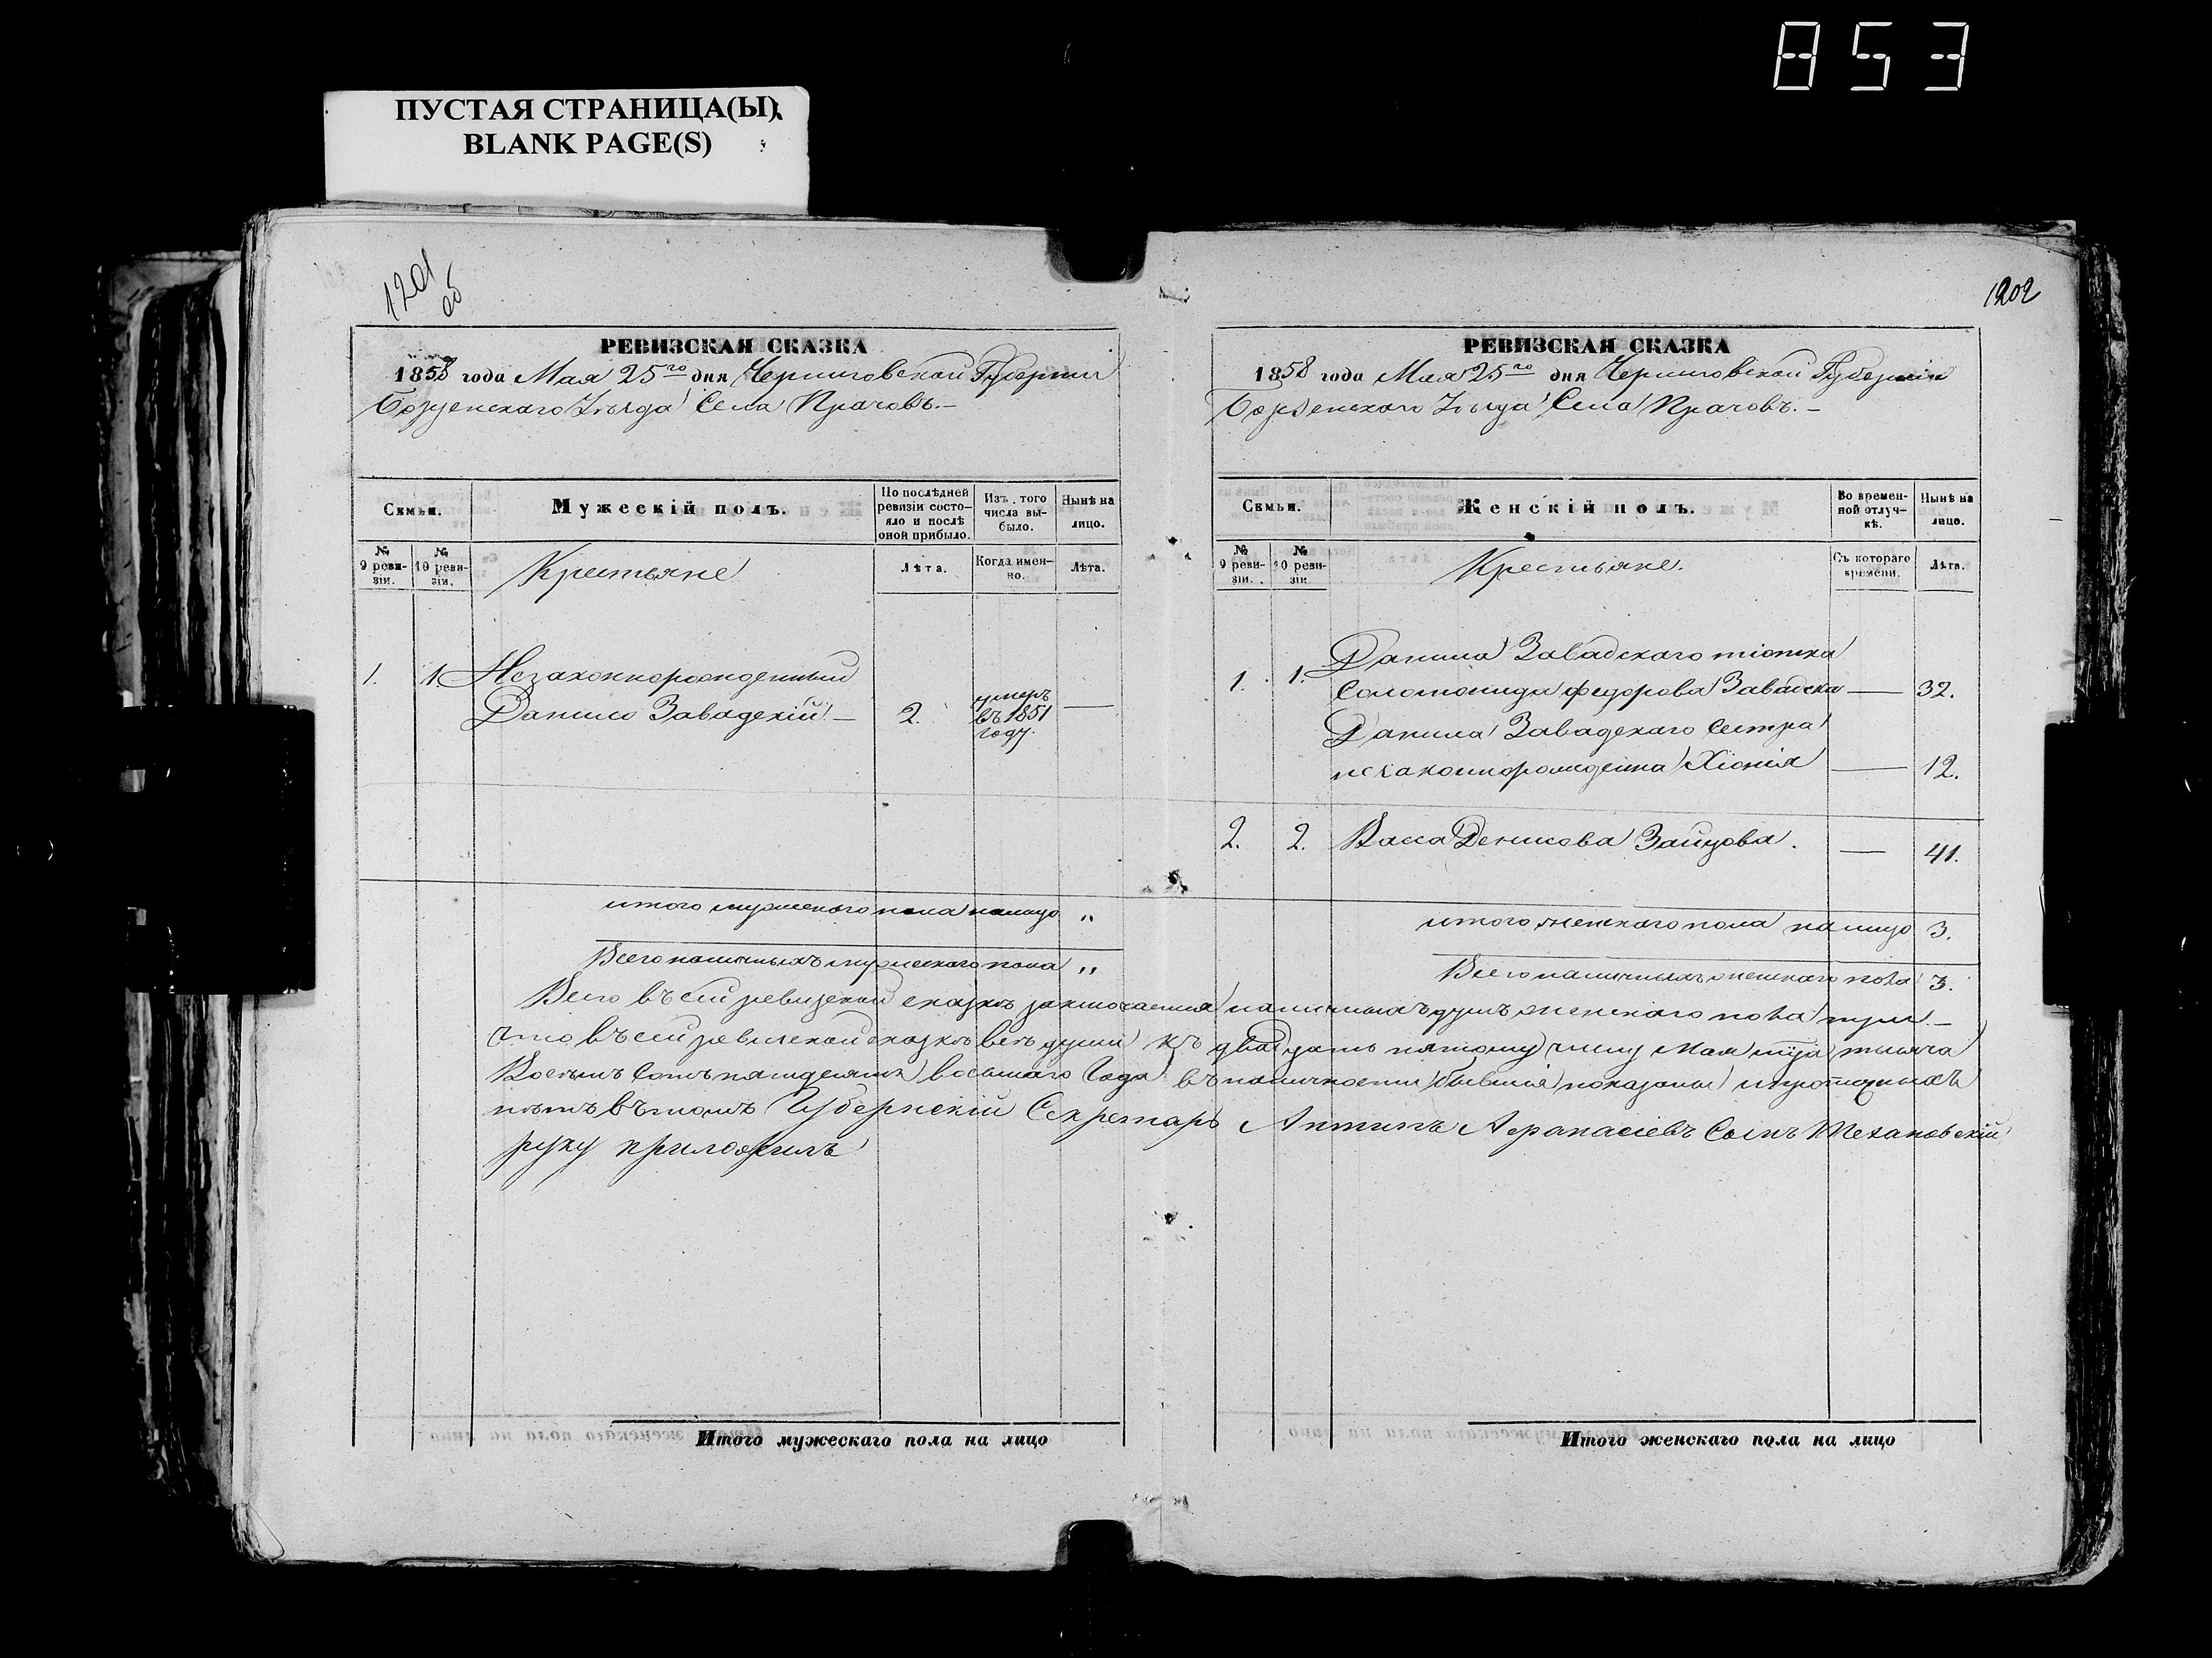 853
ПУСТАЯ СТРАНИЦА(Ы)
BLANK PAGE(S)
1201
об
РЕВИЗСКАЯ СКАЗКА
1858 года Мая 25го дня Черниговской Губернии
Борзенскаго Уѣзда Села Прачовъ.—
Семьи.
Мужескій полъ.
По послѣдней ревизіи состояло и послѣ оной прибыло.
Изъ того числа выбыло.
Нынѣ на лицо.
№ 9 ревизіи.
№ 10 ревизіи.
Крестьяне
Лѣта.
Когда именно.
Лѣта.
1. 1. Незаконнорожденный
Данило Завадскій — 2. умеръ въ 1851 году. —
итого мужескаго пола налицо "
Всего наличныхъ мужескаго пола "
1202
РЕВИЗСКАЯ СКАЗКА
1858 года Мая 25го дня Черниговской Губерніи
Борзенскаго Уѣзда Села Прачовъ.—
Семьи.
Женскій полъ.
Во временной отлучкѣ.
Нынѣ на лицо.
№ 9 ревизіи.
№ 10 ревизіи.
Крестьяне.
Съ котораго времени.
Лѣта.
1. 1. Данила Завадскаго тіотка
Соломонида Федорова Завадска — 32.
Данила Завадскаго Сестра
незаконнорождена Хіонія — 12.
2. 2. Васса Денисова Зайцова. — 41.
итого женскаго пола налицо 3.
Всего наличныхъ женскаго пола 3.
Всего въ сей ревизской сказкѣ заключается наличныхъ душъ женскаго пола три.—
Что въ сей ревизской сказкѣ всѣ души къ двадцать пятому числу Мая тысяча
Восемь Сотъ пятдесятъ восьмаго Года въ наличности бывшія показаны и прописныхъ
нѣтъ въ томъ Губернскій Секретарь Антипъ Афанасіевъ Сынъ
руку приложилъ
Итого мужескаго пола на лицо
Итого женскаго пола на лицо